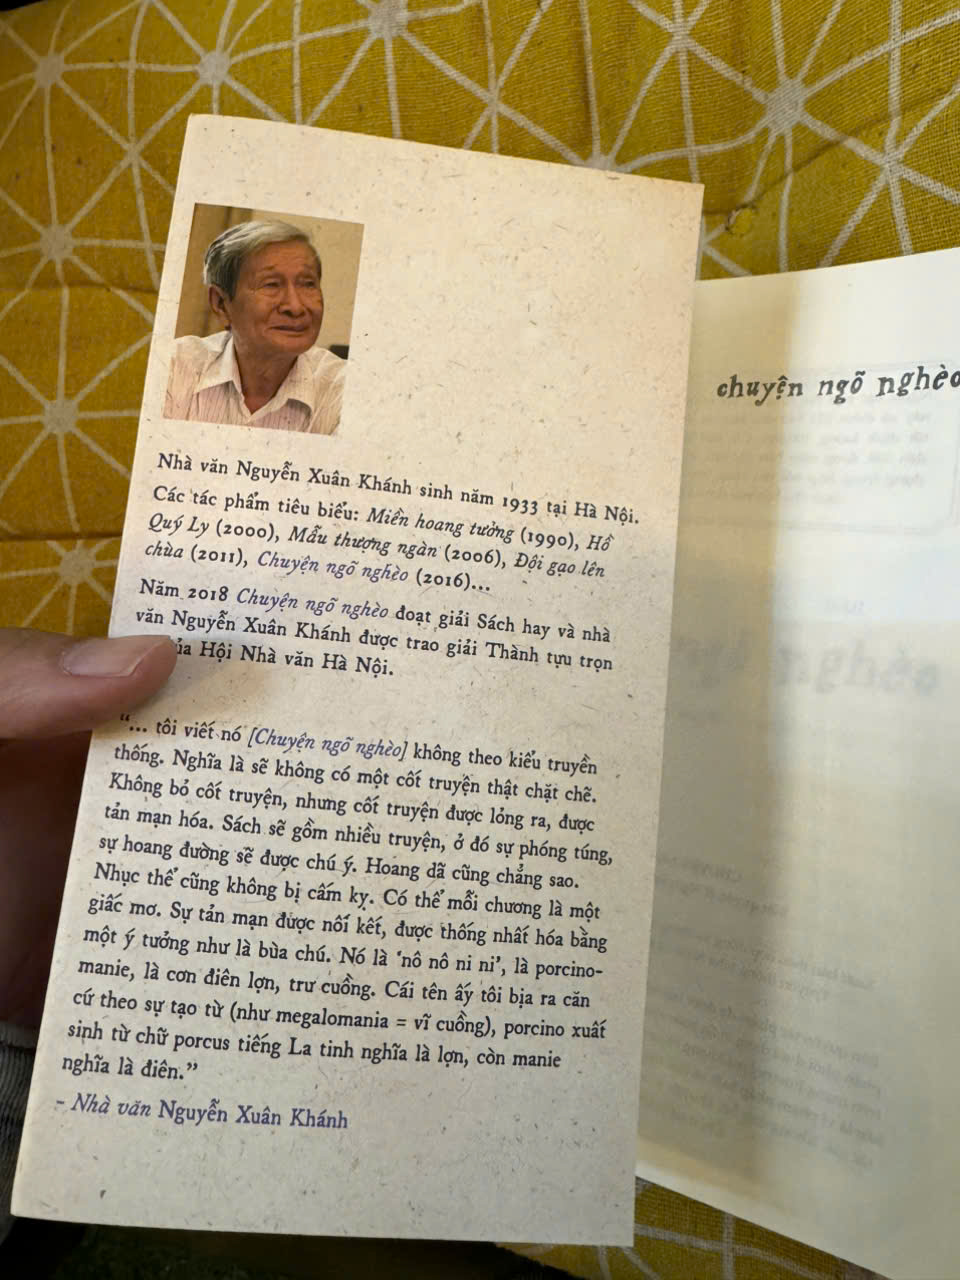 Nhà văn Nguyễn Xuân Khánh sinh năm 1933 tại Hà Nội.
Các tác phẩm tiêu biểu: Miền hoang tưởng (1990), Hồ
Quý Ly (2000), Mẫu thượng ngàn (2006), Đội gạo lên
chùa (2011), Chuyện ngõ nghèo (2016)...
Năm 2018 Chuyện ngõ nghèo đoạt giải Sách hay và nhà
văn Nguyễn Xuân Khánh được trao giải Thành tựu trọn
Hội Nhà văn Hà Nội.
“... tôi viết nó [Chuyện ngõ nghèo] không theo kiểu truyền
thống. Nghĩa là sẽ không có một cốt truyện thật chặt chẽ.
Không bỏ cốt truyện, nhưng cốt truyện được lỏng ra, được
tản mạn hóa. Sách sẽ gồm nhiều truyện, ở đó sự phóng túng,
sự hoang đường sẽ được chú ý. Hoang dã cũng chẳng sao.
Nhục thể cũng không bị cấm kỵ. Có thể mỗi chương là một
giấc mơ. Sự tản mạn được nối kết, được thống nhất hóa bằng
một ý tưởng như là bùa chú. Nó là ‘nô nô ni ni’, là porcino-
manie, là cơn điên lợn, trư cuồng. Cái tên ấy tôi bịa ra căn
cứ theo sự tạo từ (như megalomania = vĩ cuồng), porcino xuất
sinh từ chữ porcus tiếng La tinh nghĩa là lợn, còn manie
nghĩa là điên.”
- Nhà văn Nguyễn Xuân Khánh
chuyện ngõ nghèo